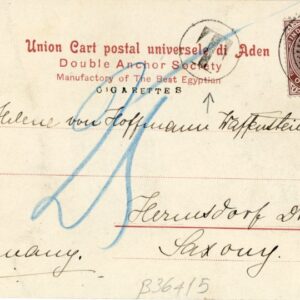 Union Cart postal universele di Aden
Double Anchor Society
Manufactory of The Best Egyptian
CIGARETTES
T
Helene von Hoffmann Waffenstein
25
Hermsdorf
Saxony.
many.
B36415